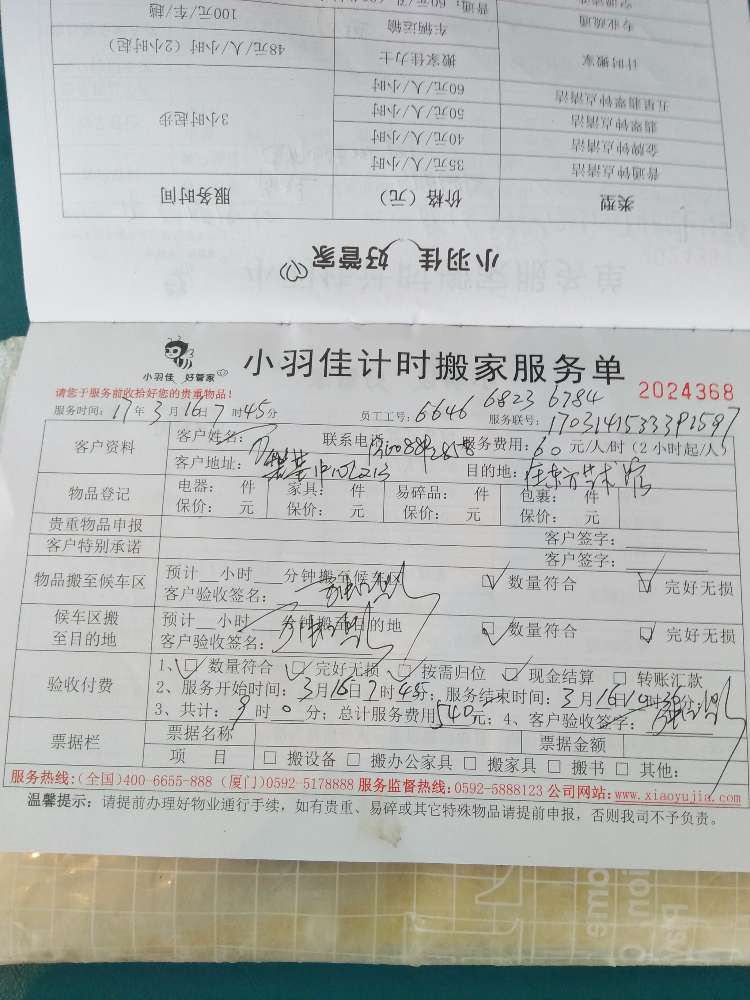 小羽佳 好管家
类型 价格（元） 服务时间
普通钟点清洁 35元/人/小时
金牌钟点清洁 40元/人/小时 3小时起步
翡翠钟点清洁 50元/人/小时
五星翡翠钟点清洁 60元/人/小时
计时搬家 搬家佳力士 48元/人/小时（2小时起）
车辆运输 100元/车/趟
专业疏通
小羽佳 好管家
小羽佳计时搬家服务单
2024368
请您于服务前收拾好您的贵重物品！
服务时间：17年3月16日7时45分 员工工号：6646 6823 6784 服务联号：
客户资料 客户姓名： 联系电话： 服务费用：60元/人/时（2小时起/人）
客户地址： 目的地：
物品登记 电器： 件 家具： 件 易碎品： 件 包裹： 件
保价： 元 保价： 元 保价： 元 保价： 元
贵重物品申报 客户签字：
客户特别承诺 客户签字：
物品搬至候车区 预计__小时___分钟搬至候车区 数量符合 完好无损
客户验收签名：
候车区搬至目的地 预计__小时___分钟搬至目的地 数量符合 完好无损
客户验收签名：
验收付费 1、数量符合 完好无损 按需归位 现金结算 转账汇款
2、服务开始时间：3月16日7时45分；服务结束时间：3月16日10时
3、共计：9时0分；总计服务费用540元；4、客户验收签字：
票据栏 票据名称 票据金额
项 目 搬设备 搬办公家具 搬家具 搬书 其他：
服务热线：(全国)400-6655-888 (厦门)0592-5178888 服务监督热线：0592-5888123 公司网站：www.xiaoyujia.com
温馨提示：请提前办理好物业通行手续，如有贵重、易碎或其它特殊物品请提前申报，否则我司不予负责。